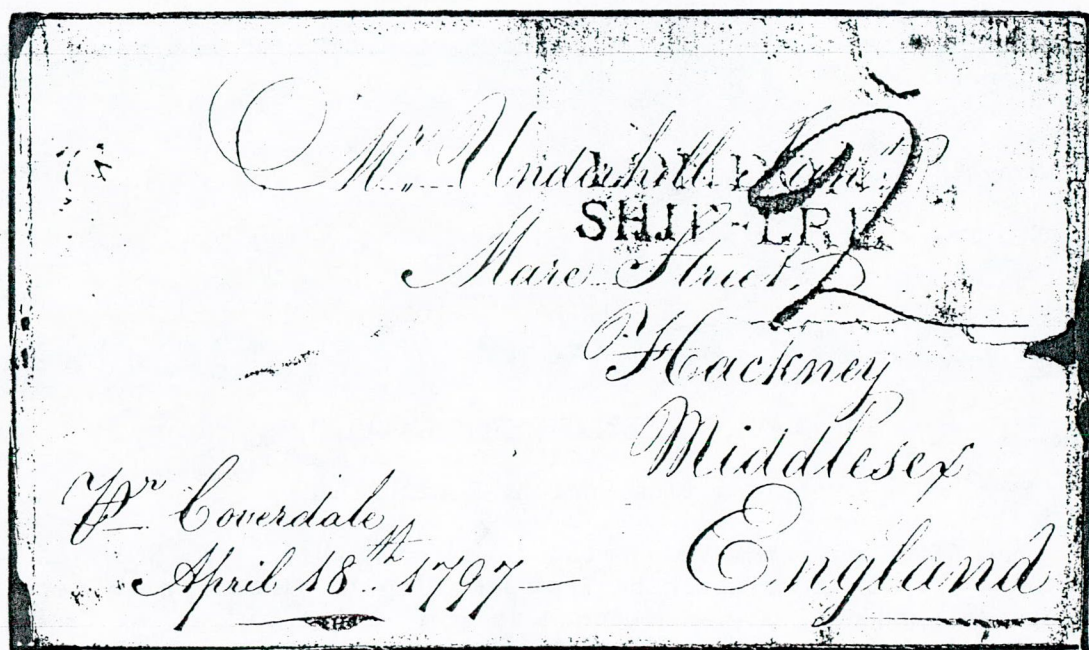 Mr. Underhill
SHIP-LRE
Mare Street
2
Hackney
Middlesex
England
Pr Coverdale
April 18th 1797